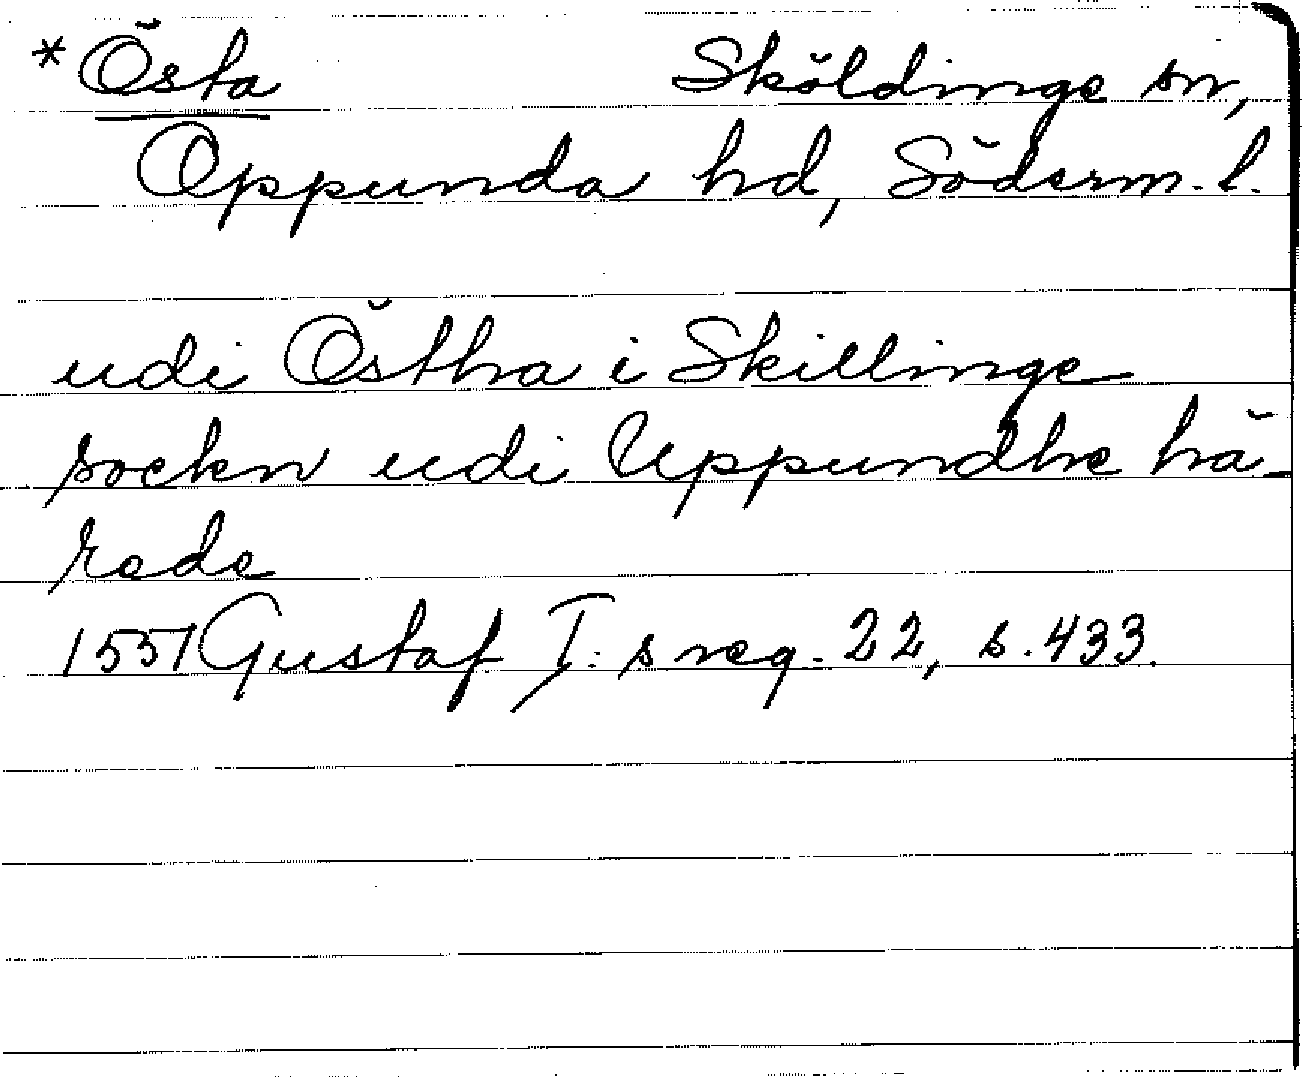 *Östa Sköldinge sn,
Oppunda hd, Söderm. l.
udi Östha i Skillinge
sockn udi Uppundhe hä-
rade
1551 Gustaf I: s reg. 22, s. 433.